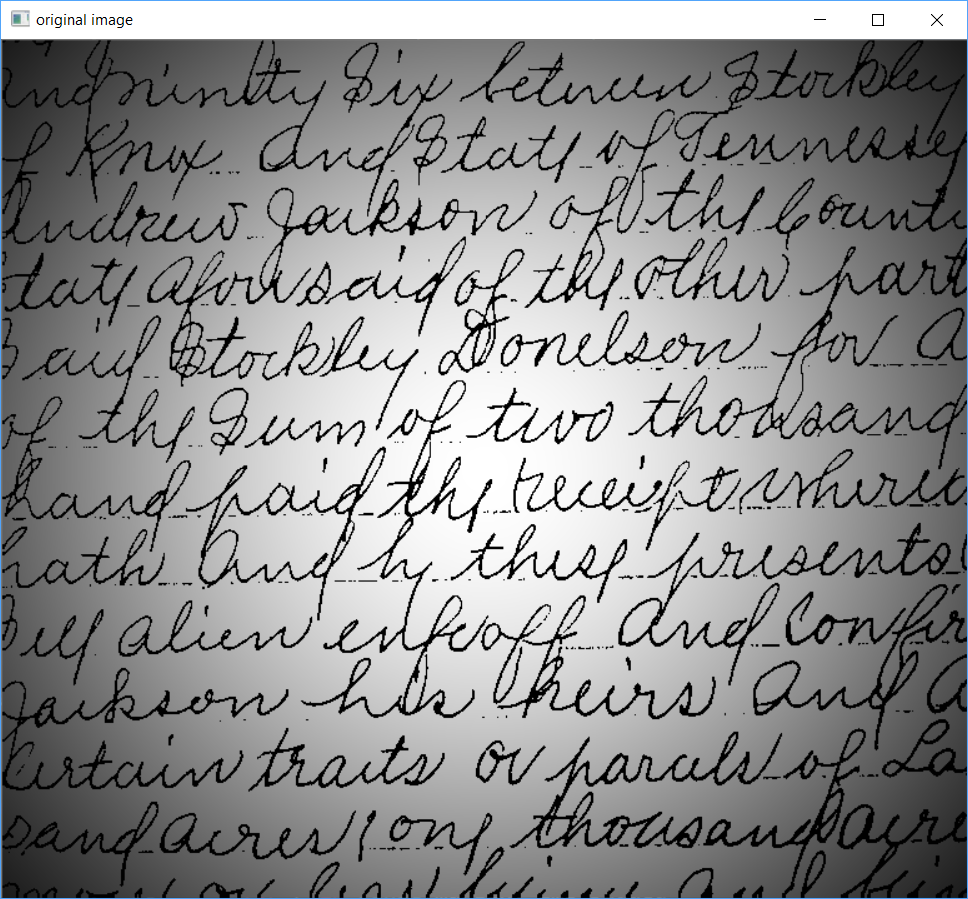 original image
and ninty Six between Stockley
of Knox And State of Tennessey
Andrew Jackson of the Count
State aforesaid of the other part
Said Stockley Donelson for A
of the Sum of two thousand
hand paid the receipt where
hath And by these presents
Sell alien enfeoff And Confir
Jackson his heirs And A
Certain tracts or parcels of La
sand acres one thousand acre
more or less being And bein